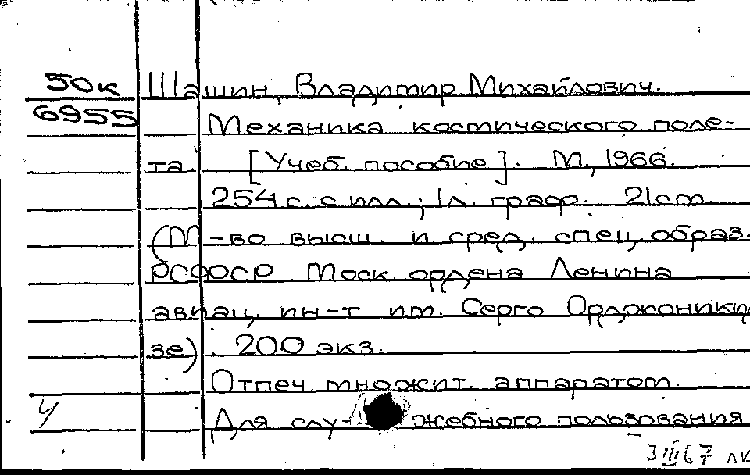 50к Шашин, Владимир Михайлович.
6955 Механика космического поле-
та [Учеб. пособие]. М., 1966.
254 с. с илл.; 1 л. граф. 21 cm
(М-во высш. и сред. спец. образ.
РСФСР Моск ордена Ленина
авиац. ин-т им. Серго Орджоникид
зе). 200 экз.
Отпеч. множит. аппаратом.
Для слу-жебного пользования
3 III 67